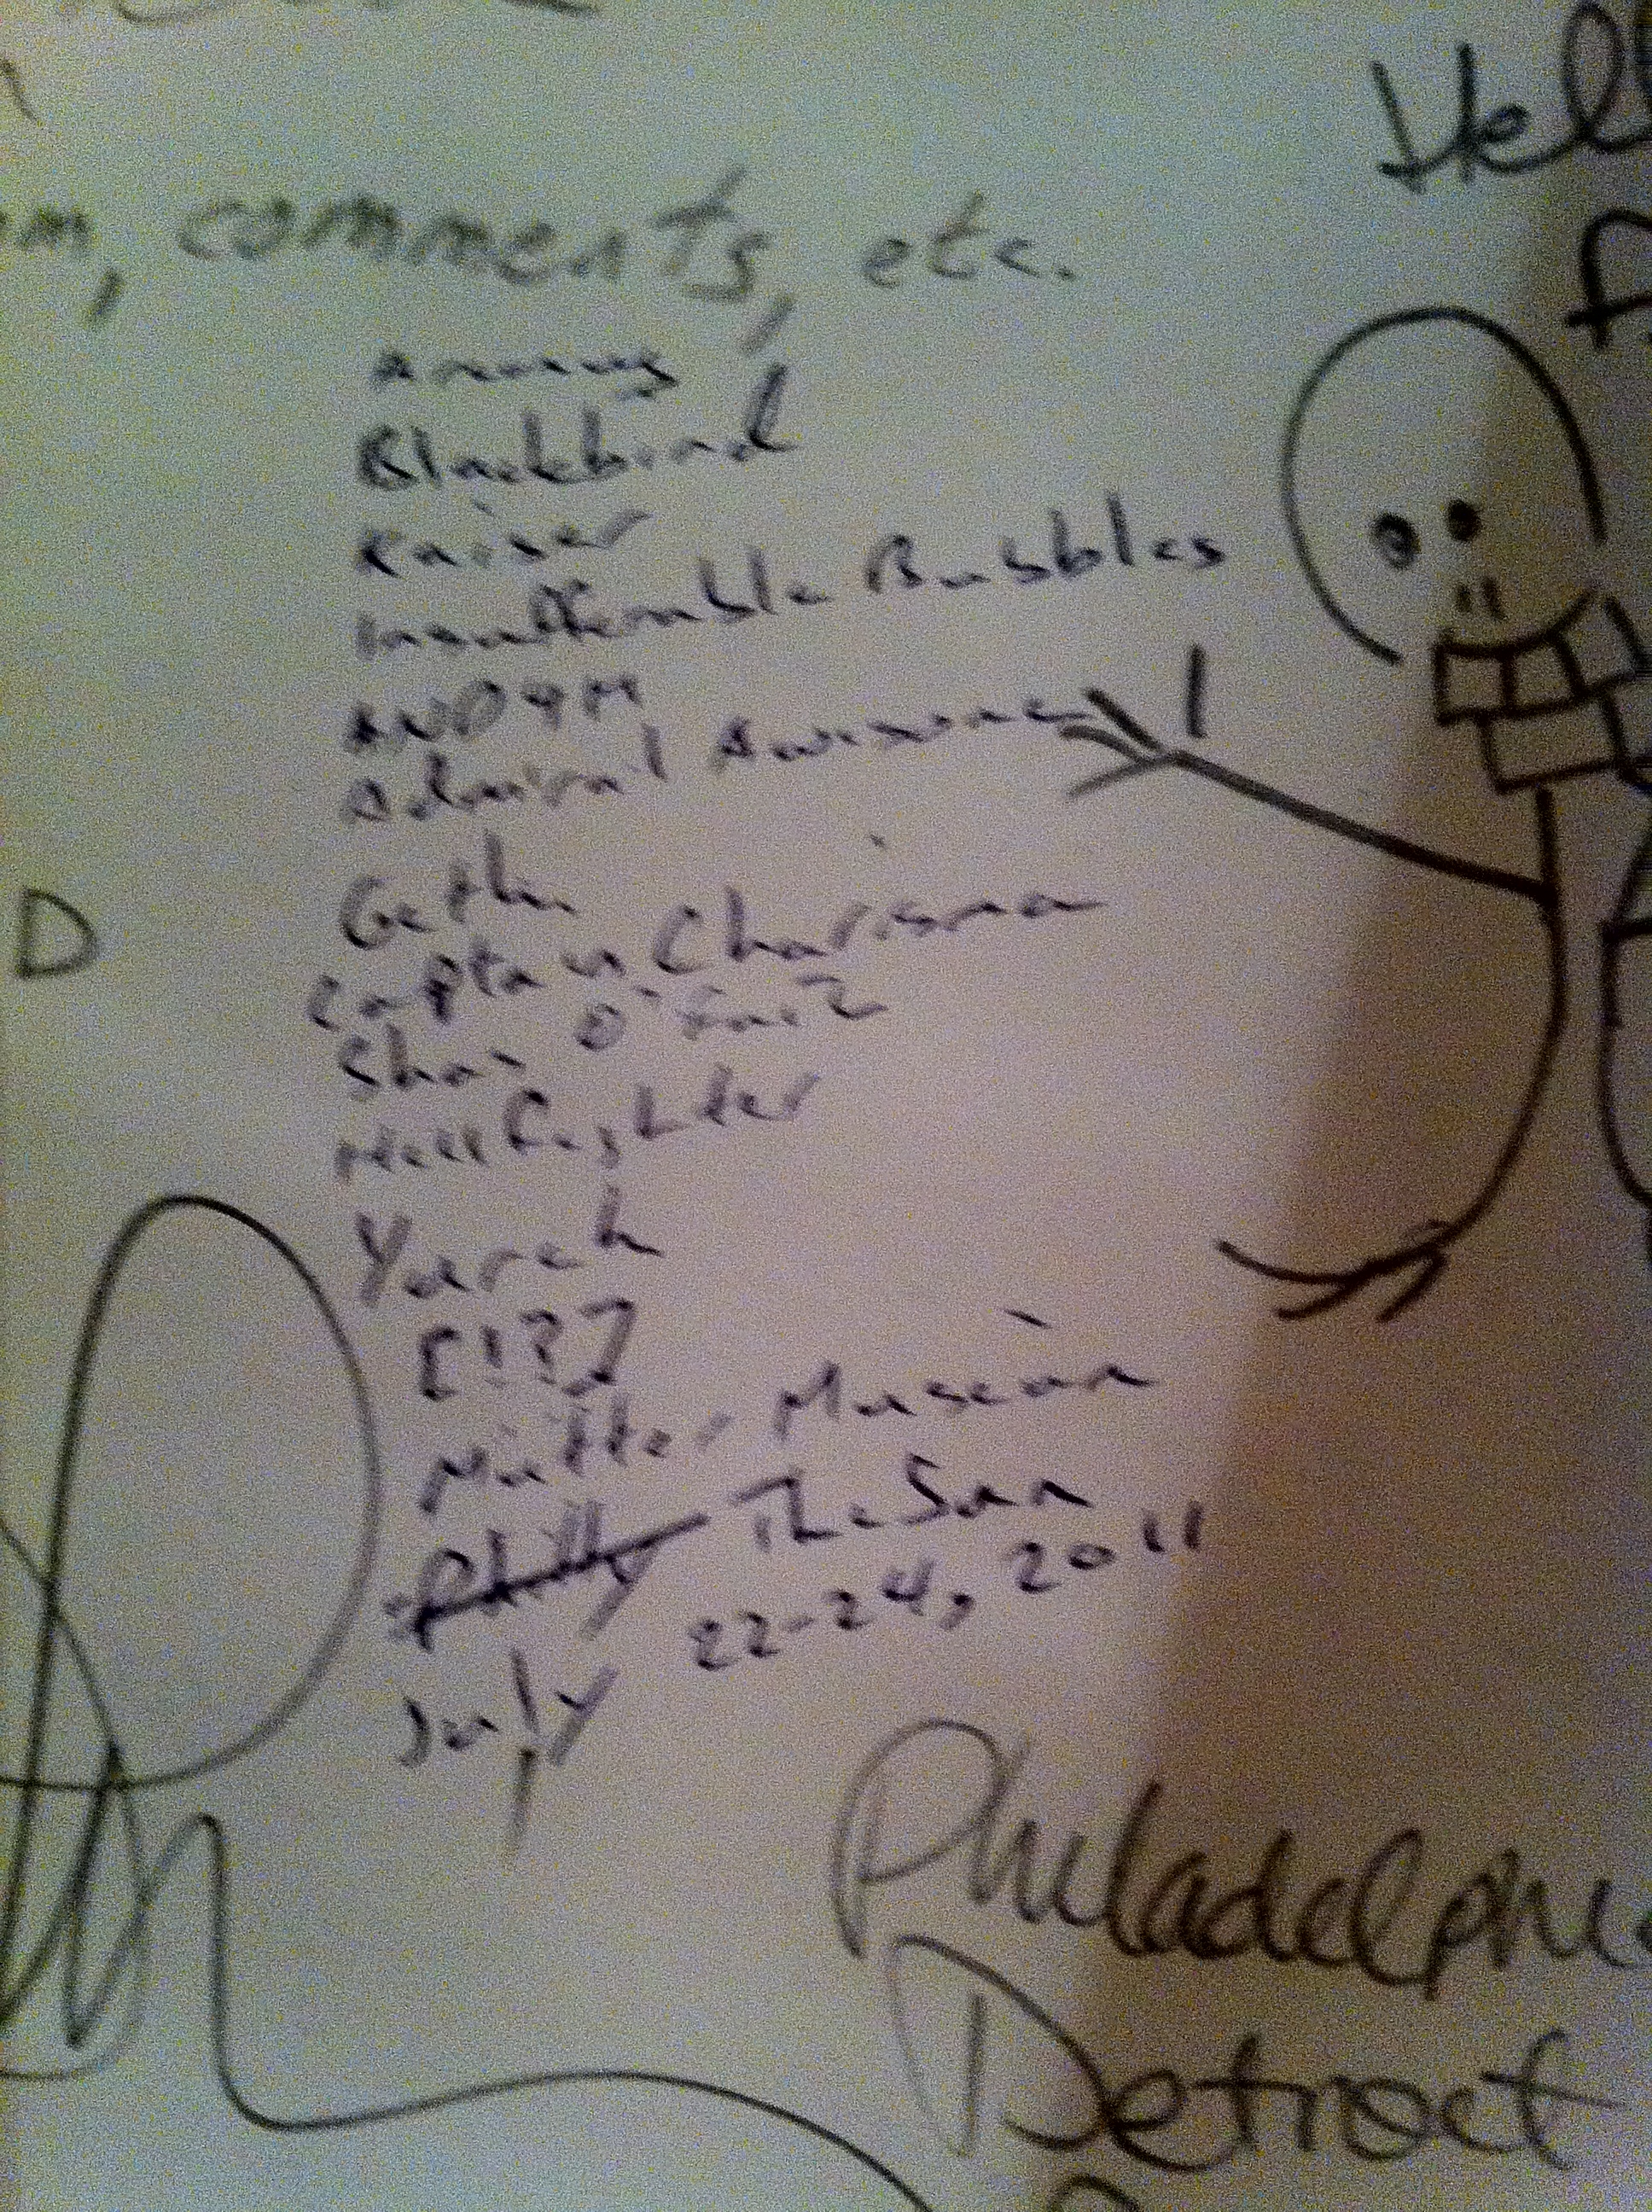 Hel
m, comments, etc.
Blackbird
Kaiser
Insufferable Bubbles
Admiral Awesome
Gethin
Captain Charisma
Shan O'
Hellfighter
Yareh
[!??]
Mütter Museum
Philly The Sun
July 22-24, 2011
D
Philadelphia
Detroit